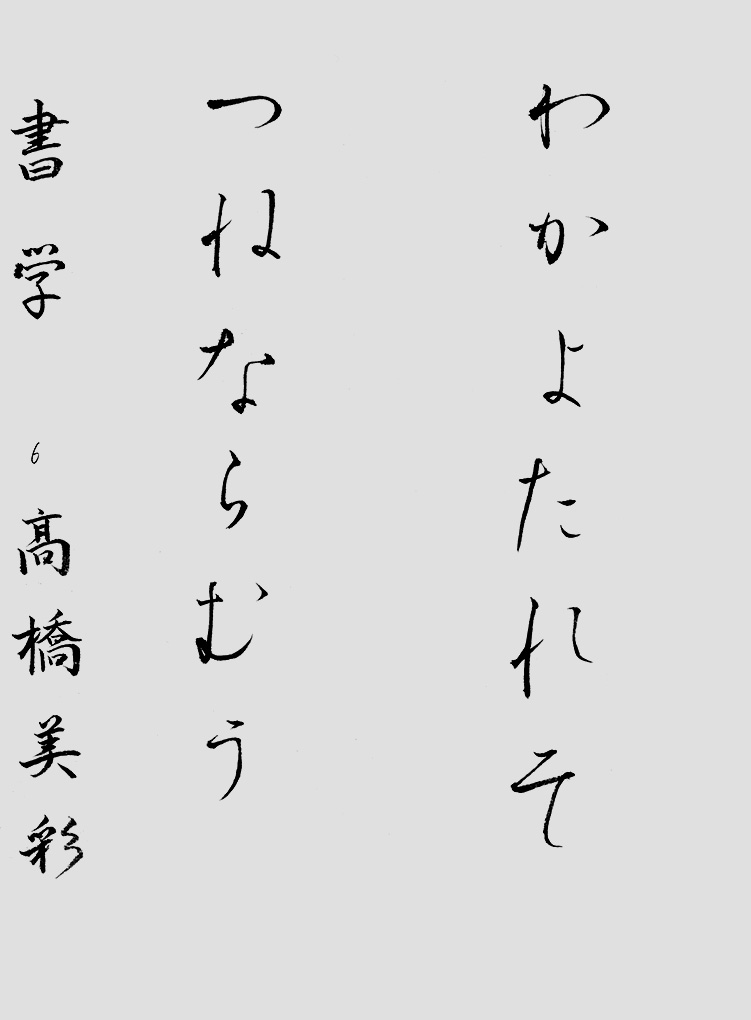 わかよたれそ
つねならむう
書学 6 高橋美彩